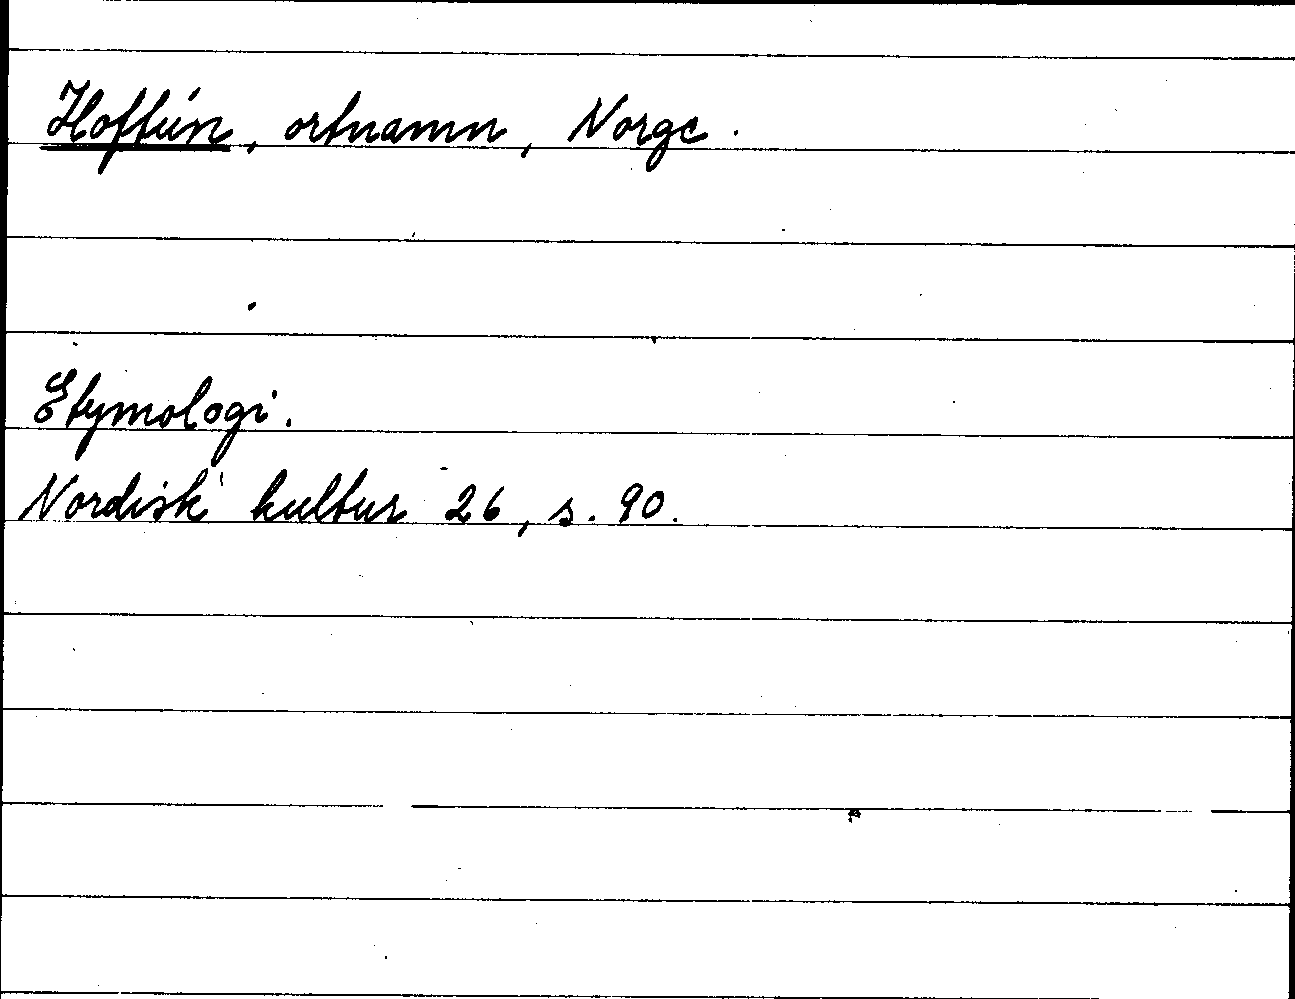 Hoftún, ortnamn, Norge.
Etymologi.
Nordisk kultur 26, s. 90.